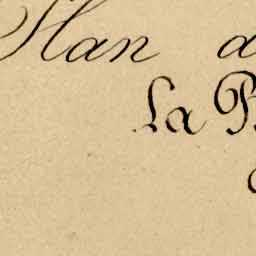 Plan d
La P